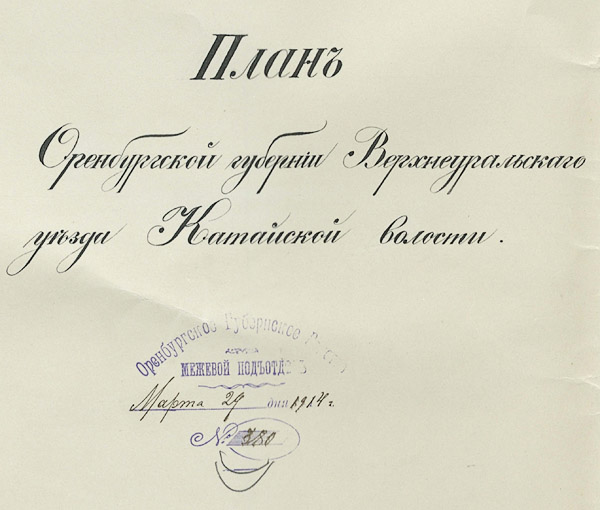 Планъ
Оренбургской губернiи Верхнеуральскаго
уѣзда Катайской волости.
Оренбургское Губернское
МЕЖЕВОЙ ПОДЪОТД
Марта 29 дня 1914 г.
№ 380